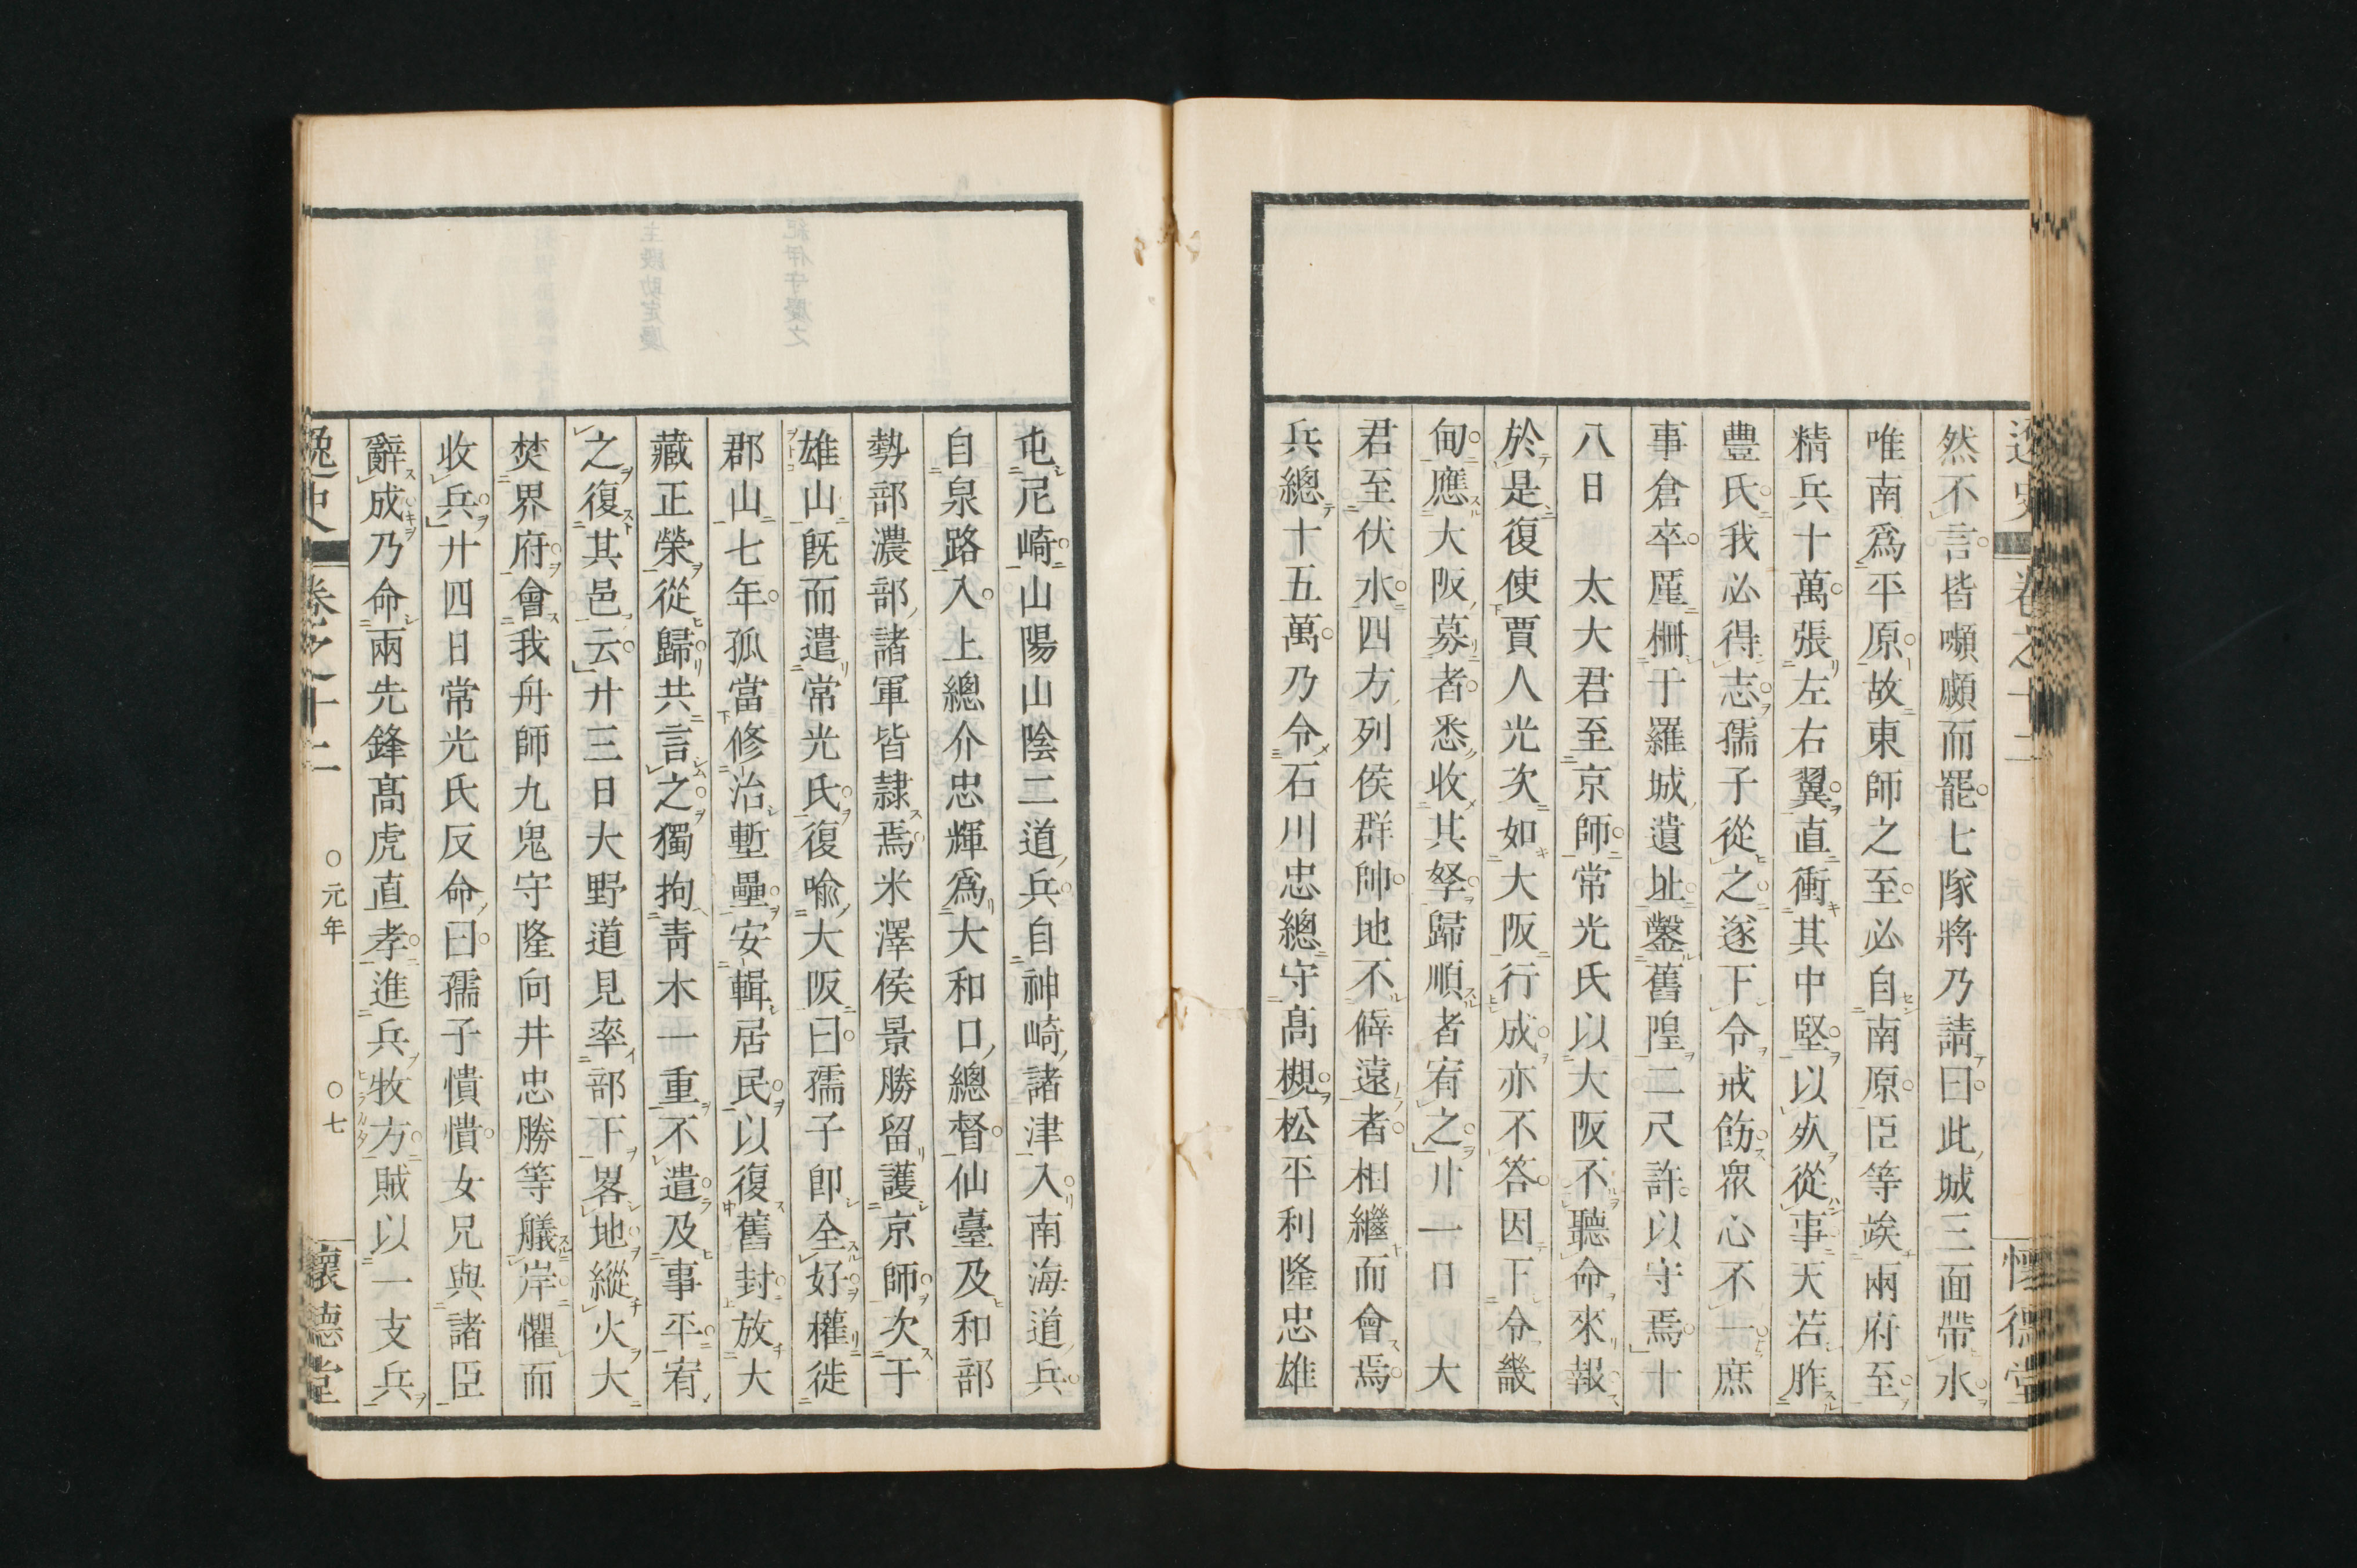 然不言皆嚬顣而罷七隊將乃請曰此城三面帶水
唯南爲平原故東師之至必自南原臣等竢兩府至
精兵十萬張左右翼直衝其中堅以㱾從事天若胙
豊氏我必得志孺子從之遂下令戒飭眾心不一庶
事倉卒厪柵于羅城遺址鑿舊隍二尺許以守焉十
八日　太大君至京師常光氏以大阪不聽命來報
於是復使賈人光次如大阪行成亦不答因下令畿
甸應大阪募者悉收其孥歸順者宥之卄一日　大
君至伏水四方列侯群帥地不僻遠者相繼而會焉
兵總十五萬乃令石川忠總守髙槻松平利隆忠雄
屯尼崎山陽山陰二道兵自神崎諸津入南海道兵
自泉路入上總介忠輝爲大和口總督仙臺及和部
勢部濃部諸軍皆隷焉米澤侯景勝留護京師次于
雄山既而遣常光氏復喩大阪曰孺子即全好權徙
郡山七年孤當修治塹壘安輯居民以復舊封放大
藏正榮從歸共言之獨拘青木一重不遣及事平宥
之復其邑云卄三日大野道見率部下畧地縱火大
焚界府會我舟師九鬼守隆向井忠勝等艤岸懼而
收兵卄四日常光氏反命曰孺子憒憒女兄與諸臣
辭成乃命兩先鋒髙虎直孝進兵牧方賊以一支兵
逸史　卷之十二　〇元年　〇七　懷德堂